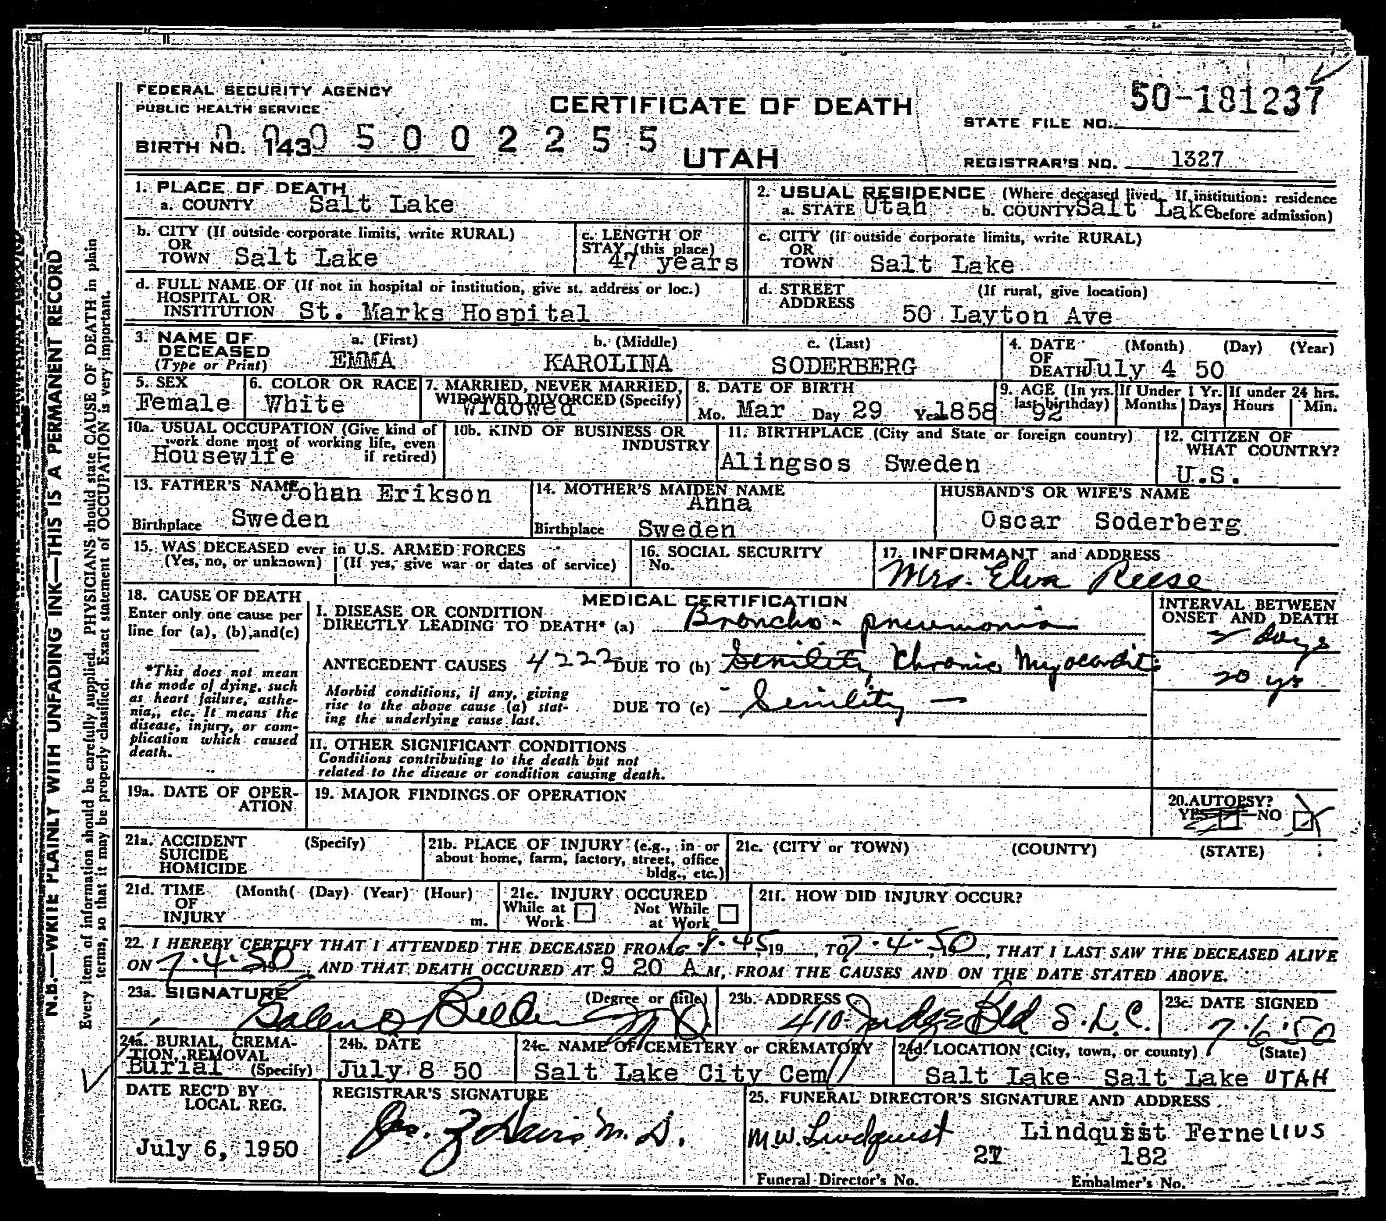 FEDERAL SECURITY AGENCY
PUBLIC HEALTH SERVICE
CERTIFICATE OF DEATH
UTAH
50-181237
STATE FILE NO.
BIRTH NO. 143
0005002255
REGISTRAR'S NO. 1327
N.B.—WRITE PLAINLY WITH UNFADING INK—THIS IS A PERMANENT RECORD
Every item of information should be carefully supplied. PHYSICIANS should state CAUSE OF DEATH in plain
terms, so that it may be properly classified. Exact statement of OCCUPATION is very important.
1. PLACE OF DEATH
a. COUNTY Salt Lake
2. USUAL RESIDENCE (Where deceased lived. If institution: residence before admission)
a. STATE Utah b. COUNTY Salt Lake
b. CITY (If outside corporate limits, write RURAL)
OR
TOWN Salt Lake
c. LENGTH OF
STAY (this place)
47 years
c. CITY (if outside corporate limits, write RURAL)
OR
TOWN Salt Lake
d. FULL NAME OF (If not in hospital or institution, give st. address or loc.)
HOSPITAL OR
INSTITUTION St. Marks Hospital
d. STREET (If rural, give location)
ADDRESS 50 Layton Ave
3. NAME OF
DECEASED
(Type or Print)
a. (First) b. (Middle) c. (Last)
EMMA KAROLINA SODERBERG
4. DATE (Month) (Day) (Year)
OF
DEATH July 4 50
5. SEX
Female
6. COLOR OR RACE
White
7. MARRIED, NEVER MARRIED,
WIDOWED, DIVORCED (Specify)
Widowed
8. DATE OF BIRTH
Mo. Mar Day 29 Year 1858
9. AGE (In yrs. last birthday)
92
If Under 1 Yr.
Months Days
If under 24 hrs.
Hours Min.
10a. USUAL OCCUPATION (Give kind of
work done most of working life, even
if retired)
Housewife
10b. KIND OF BUSINESS OR
INDUSTRY
11. BIRTHPLACE (City and State or foreign country)
Alingsos Sweden
12. CITIZEN OF
WHAT COUNTRY?
U.S.
13. FATHER'S NAME Johan Erikson
Birthplace Sweden
14. MOTHER'S MAIDEN NAME
Anna
Birthplace Sweden
HUSBAND'S OR WIFE'S NAME
Oscar Soderberg
15. WAS DECEASED ever in U.S. ARMED FORCES
(Yes, no, or unknown) (If yes, give war or dates of service)
16. SOCIAL SECURITY
No.
17. INFORMANT and ADDRESS
Mrs. Elva Reese
18. CAUSE OF DEATH
Enter only one cause per
line for (a), (b), and (c)
*This does not mean
the mode of dying, such
as heart failure, asthe-
nia, etc. It means the
disease, injury, or com-
plication which caused
death.
MEDICAL CERTIFICATION
I. DISEASE OR CONDITION
DIRECTLY LEADING TO DEATH* (a) Broncho-pneumonia
ANTECEDENT CAUSES 4222 DUE TO (b) Senility, Chronic Myocarditis
Morbid conditions, if any, giving
rise to the above cause (a) stat-
ing the underlying cause last.
DUE TO (c) Senility —
INTERVAL BETWEEN
ONSET AND DEATH
2 days
20 yrs
II. OTHER SIGNIFICANT CONDITIONS
Conditions contributing to the death but not
related to the disease or condition causing death.
19a. DATE OF OPER-
ATION
19. MAJOR FINDINGS OF OPERATION
20. AUTOPSY?
YES NO
21a. ACCIDENT (Specify)
SUICIDE
HOMICIDE
21b. PLACE OF INJURY (e.g., in or
about home, farm, factory, street, office
bldg., etc.)
21c. (CITY or TOWN) (COUNTY) (STATE)
21d. TIME (Month( (Day) (Year) (Hour)
OF
INJURY m.
21e. INJURY OCCURED
While at Work Not While at Work
21f. HOW DID INJURY OCCUR?
22. I HEREBY CERTIFY THAT I ATTENDED THE DECEASED FROM 6-8-45, 19 , TO 7-4-50, 19 , THAT I LAST SAW THE DECEASED ALIVE
ON 7-4-50 AND THAT DEATH OCCURED AT 9 20 A M, FROM THE CAUSES AND ON THE DATE STATED ABOVE.
23a. SIGNATURE (Degree or title)
23b. ADDRESS
410 Judge Bld S.L.C.
23c. DATE SIGNED
7-6-50
24a. BURIAL, CREMA-
TION, REMOVAL
Burial (Specify)
24b. DATE
July 8 50
24c. NAME OF CEMETERY or CREMATORY
Salt Lake City Cem
24d. LOCATION (City, town, or county) (State)
Salt Lake Salt Lake UTAH
DATE REC'D BY
LOCAL REG.
July 6, 1950
REGISTRAR'S SIGNATURE
25. FUNERAL DIRECTOR'S SIGNATURE AND ADDRESS
M.W. Lindquist Lindquist Fernelius
182
Funeral Director's No. Embalmer's No.